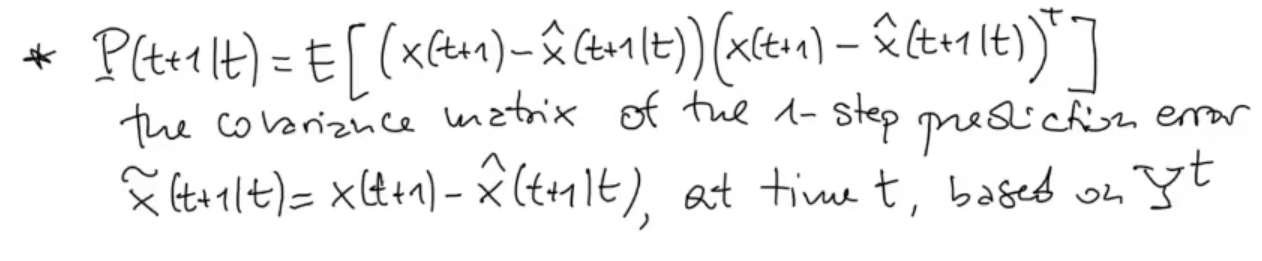 * P(t+1|t) = E[(x(t+1) - x̂(t+1|t))(x(t+1) - x̂(t+1|t))ᵀ]
the covariance matrix of the 1-step prediction error
x̃(t+1|t) = x(t+1) - x̂(t+1|t), at time t, based on Yᵗ